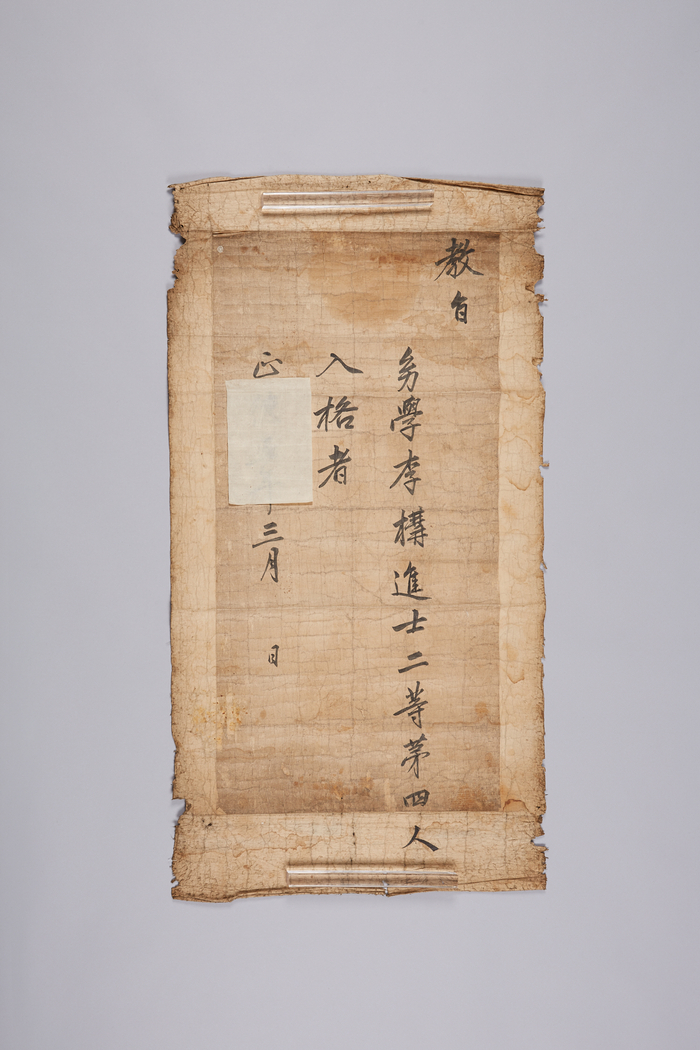 教旨
幼學李構進士二等第四人
入格者
正 三月 日